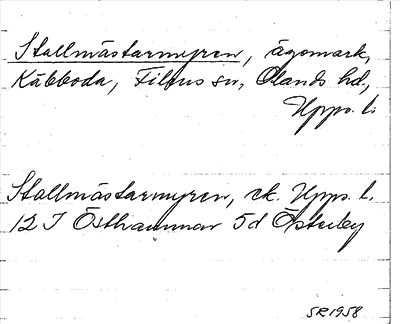 Stallmästarmyren, ägomark,
Käbboda, Films sn, Olands hd,
Upps. l.
Stallmästarmyren, ek. Upps. l.
12 I Östhammar 5d Österby
SR 1958